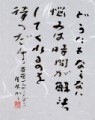 どうにもならない
悩みは時間が解決
してくれるのを
待つだけ